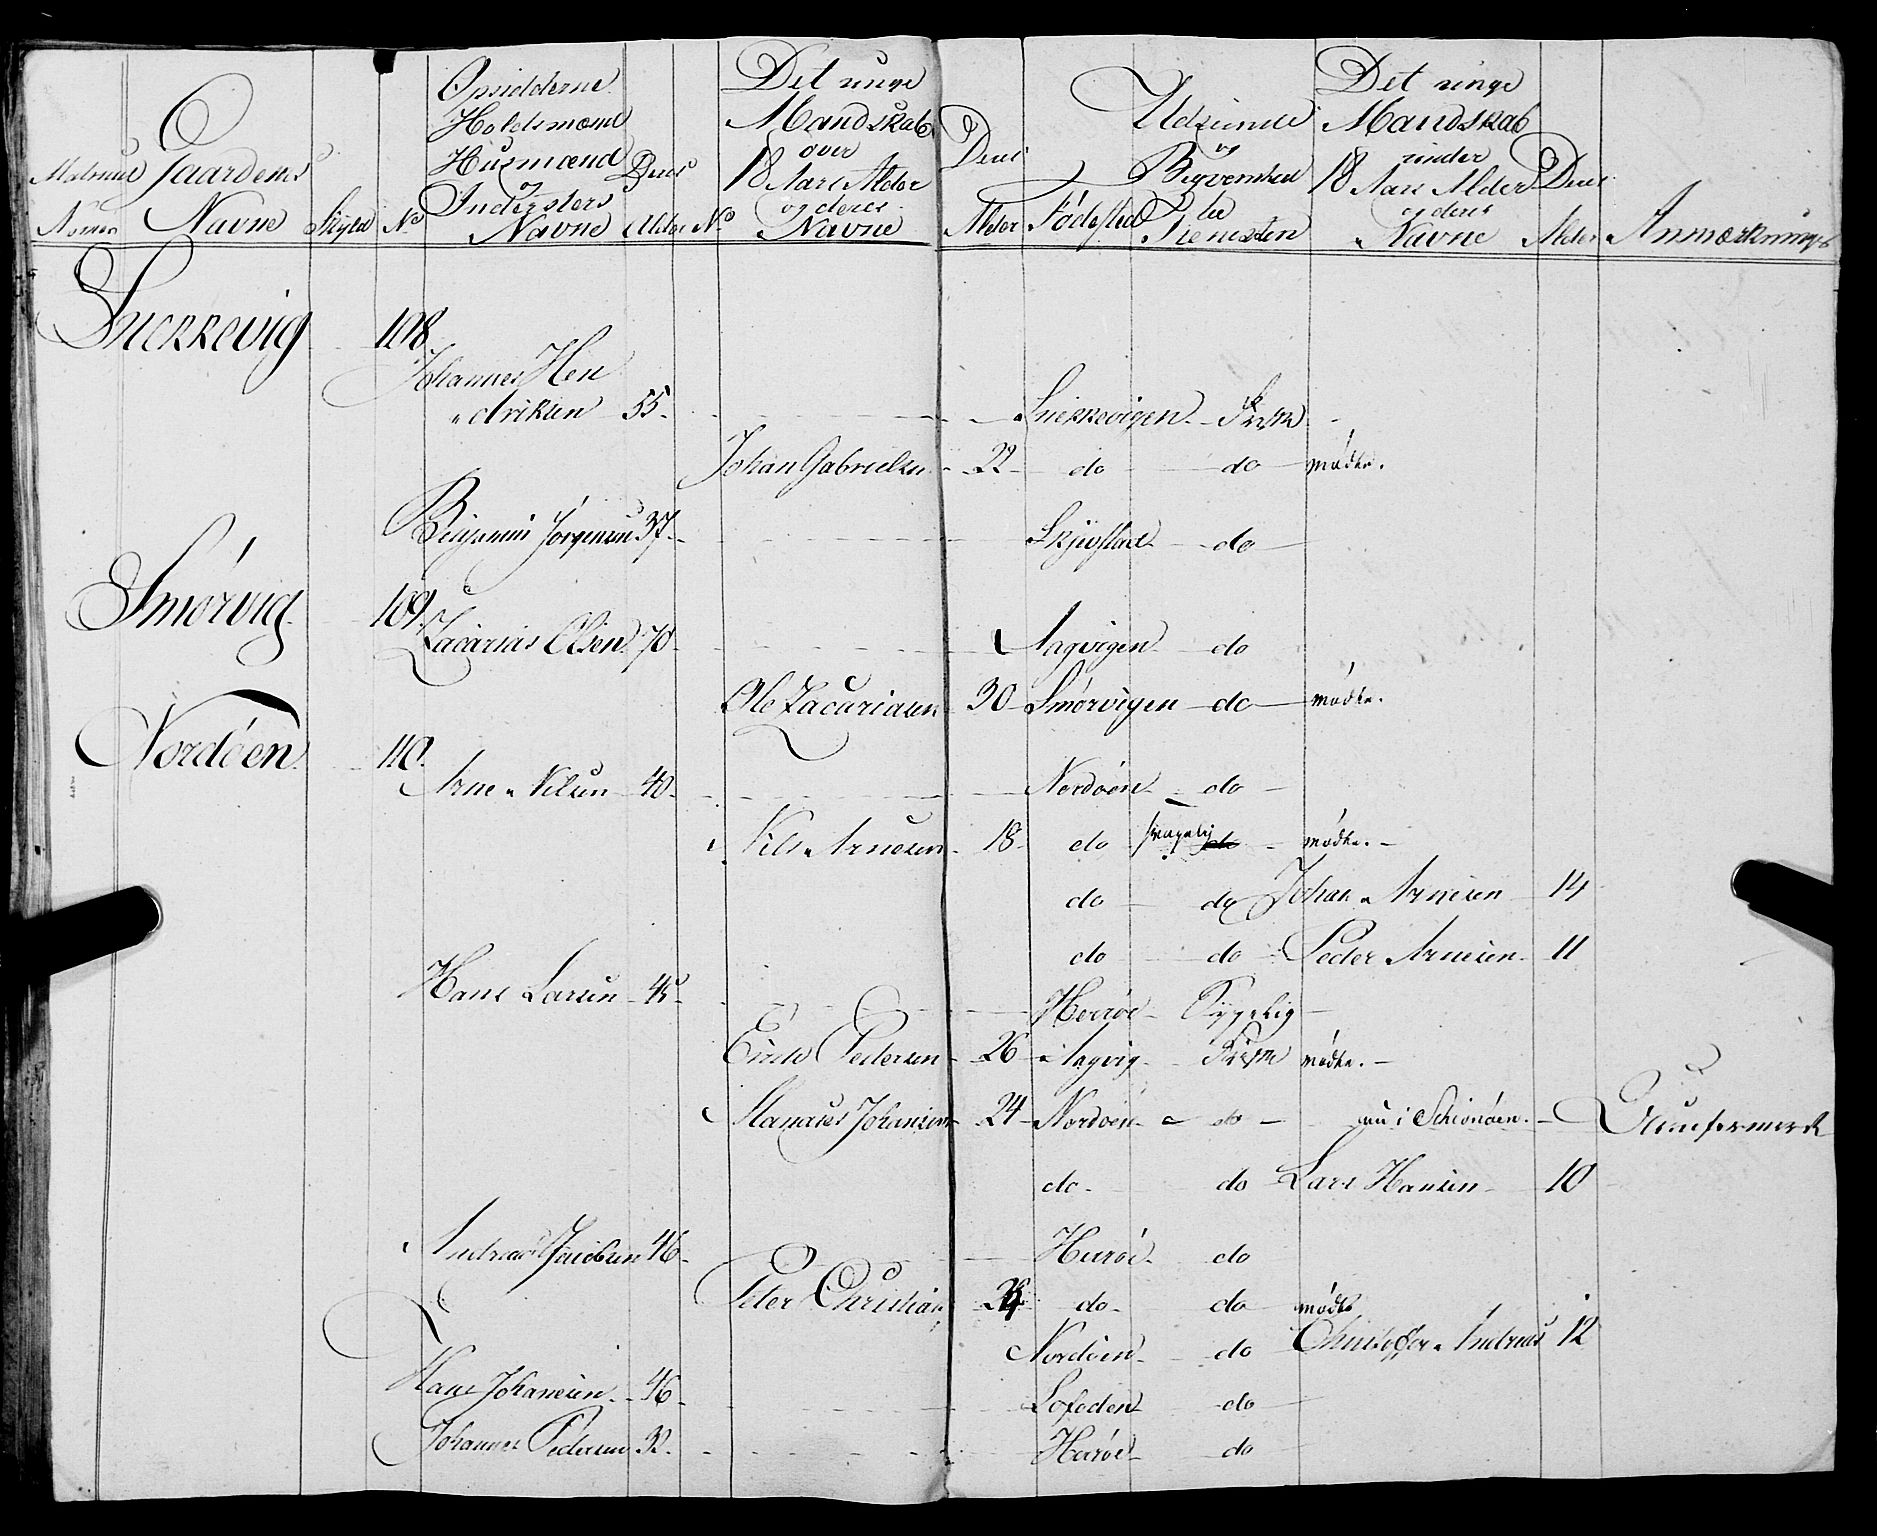 Matricul Nomer
Gaardens Navne
Skyld
No
Opsidderne Holdsmænd Husmænd Indersters Navne
Deres Alder
No
Det unge Mandskab over 18 Aars Alder og deres Navne
Deres Alder
Födested
Udseende og Beqvemhed til Tienesten
Det unge Mandskab under 18 Aars Alder og deres Navne
Deres Alder
Anmærkninger
Snekkevig 108
Johannes Hen
driksen 55 Snekkevigen Frisk
Johan Gabrielsen 22 do do mødte.
Benjamin Jörgensen 37 do
Smörvig 109
Zacarias Olsen 70 Aagvigen do
Ole Zacariasen 30 Smörvigen do mødte.
Nordöen 110.
Arne Nilsen 40 Nordöen do
Nils Arnesen 18 do svagelig do mødte.
do do Johan Arnesen 14
do do Peder Arnesen 11
Hans Larsen 45 Herröe Sygelig
Pedersen 26 Aagvig Frisk mødte.
Manases Johansen 24 Nordöen do nu i Schionöen.
do do Lars Hansen 10
Andreas Jacobsen 46 Herröe do
Peter Christian do do mødte
Nordöen do Christoffer Andreas 12
Hans Johansen 46 Lofoden do
Johannes Pedersen 32 Herröe do